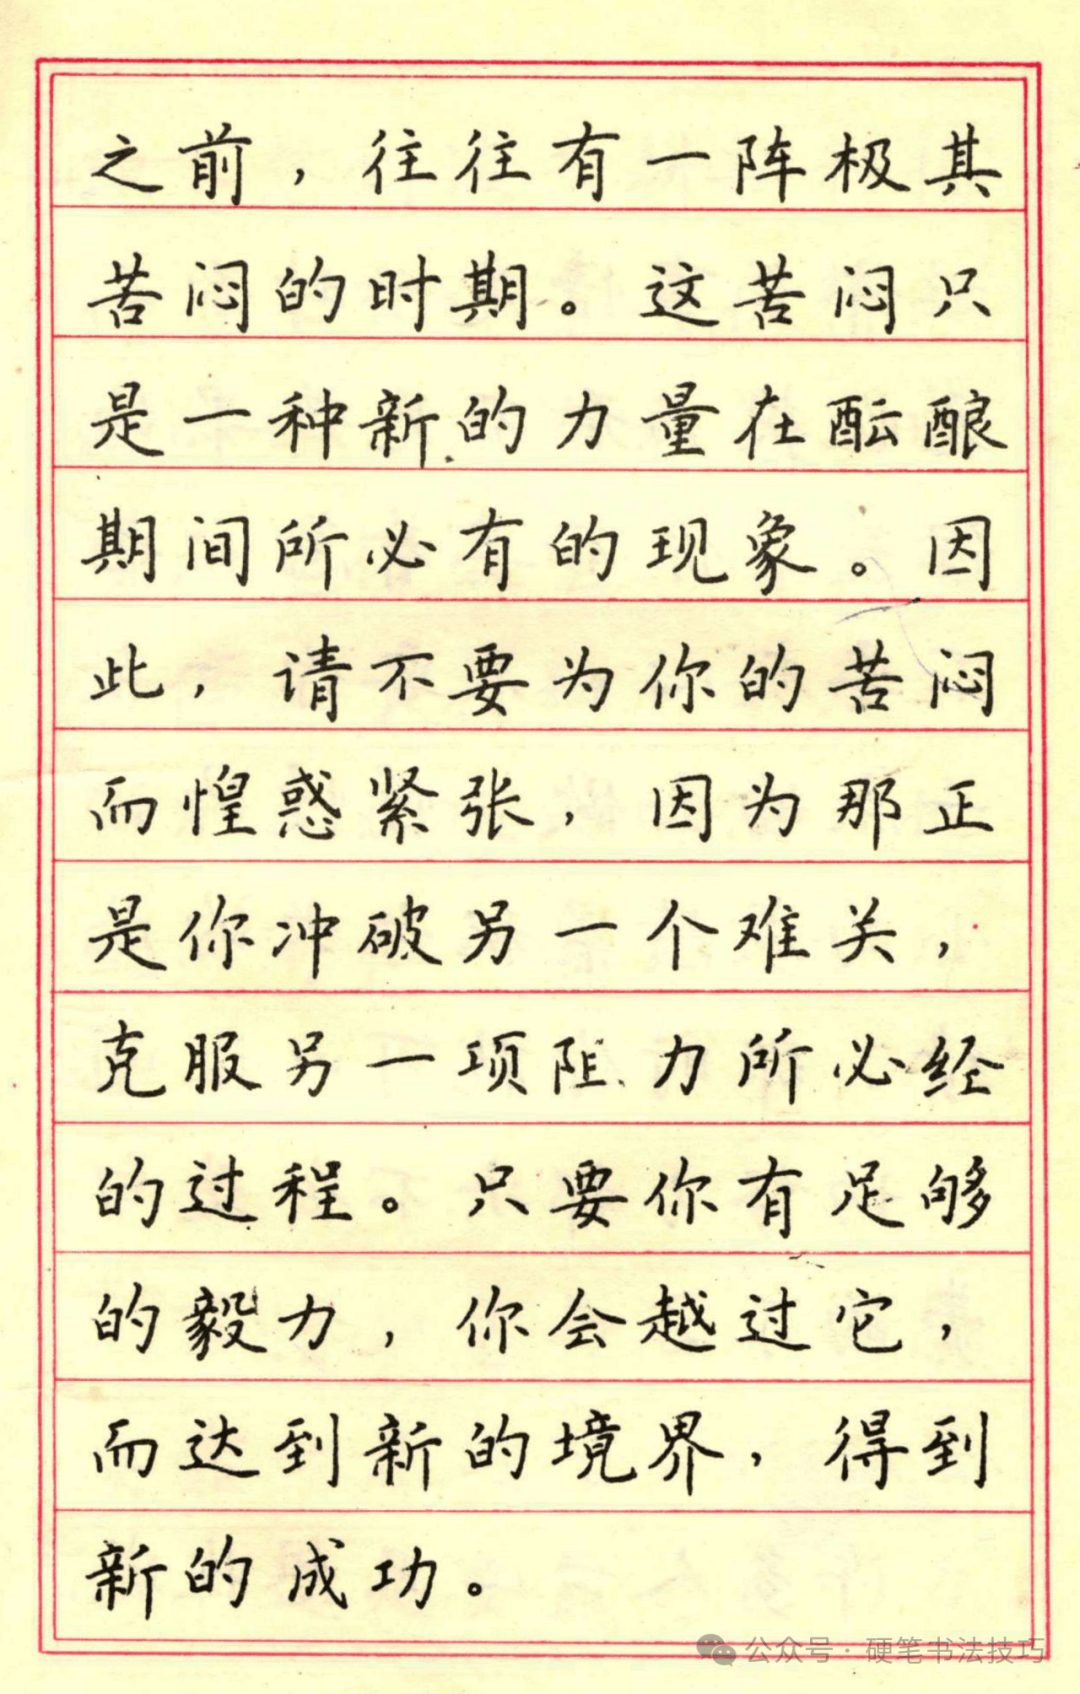 之前，往往有一阵极其
苦闷的时期。这苦闷只
是一种新的力量在酝酿
期间所必有的现象。因
此，请不要为你的苦闷
而惶惑紧张，因为那正
是你冲破另一个难关，
克服另一项阻力所必经
的过程。只要你有足够
的毅力，你会越过它，
而达到新的境界，得到
新的成功。
公众号·硬笔书法技巧